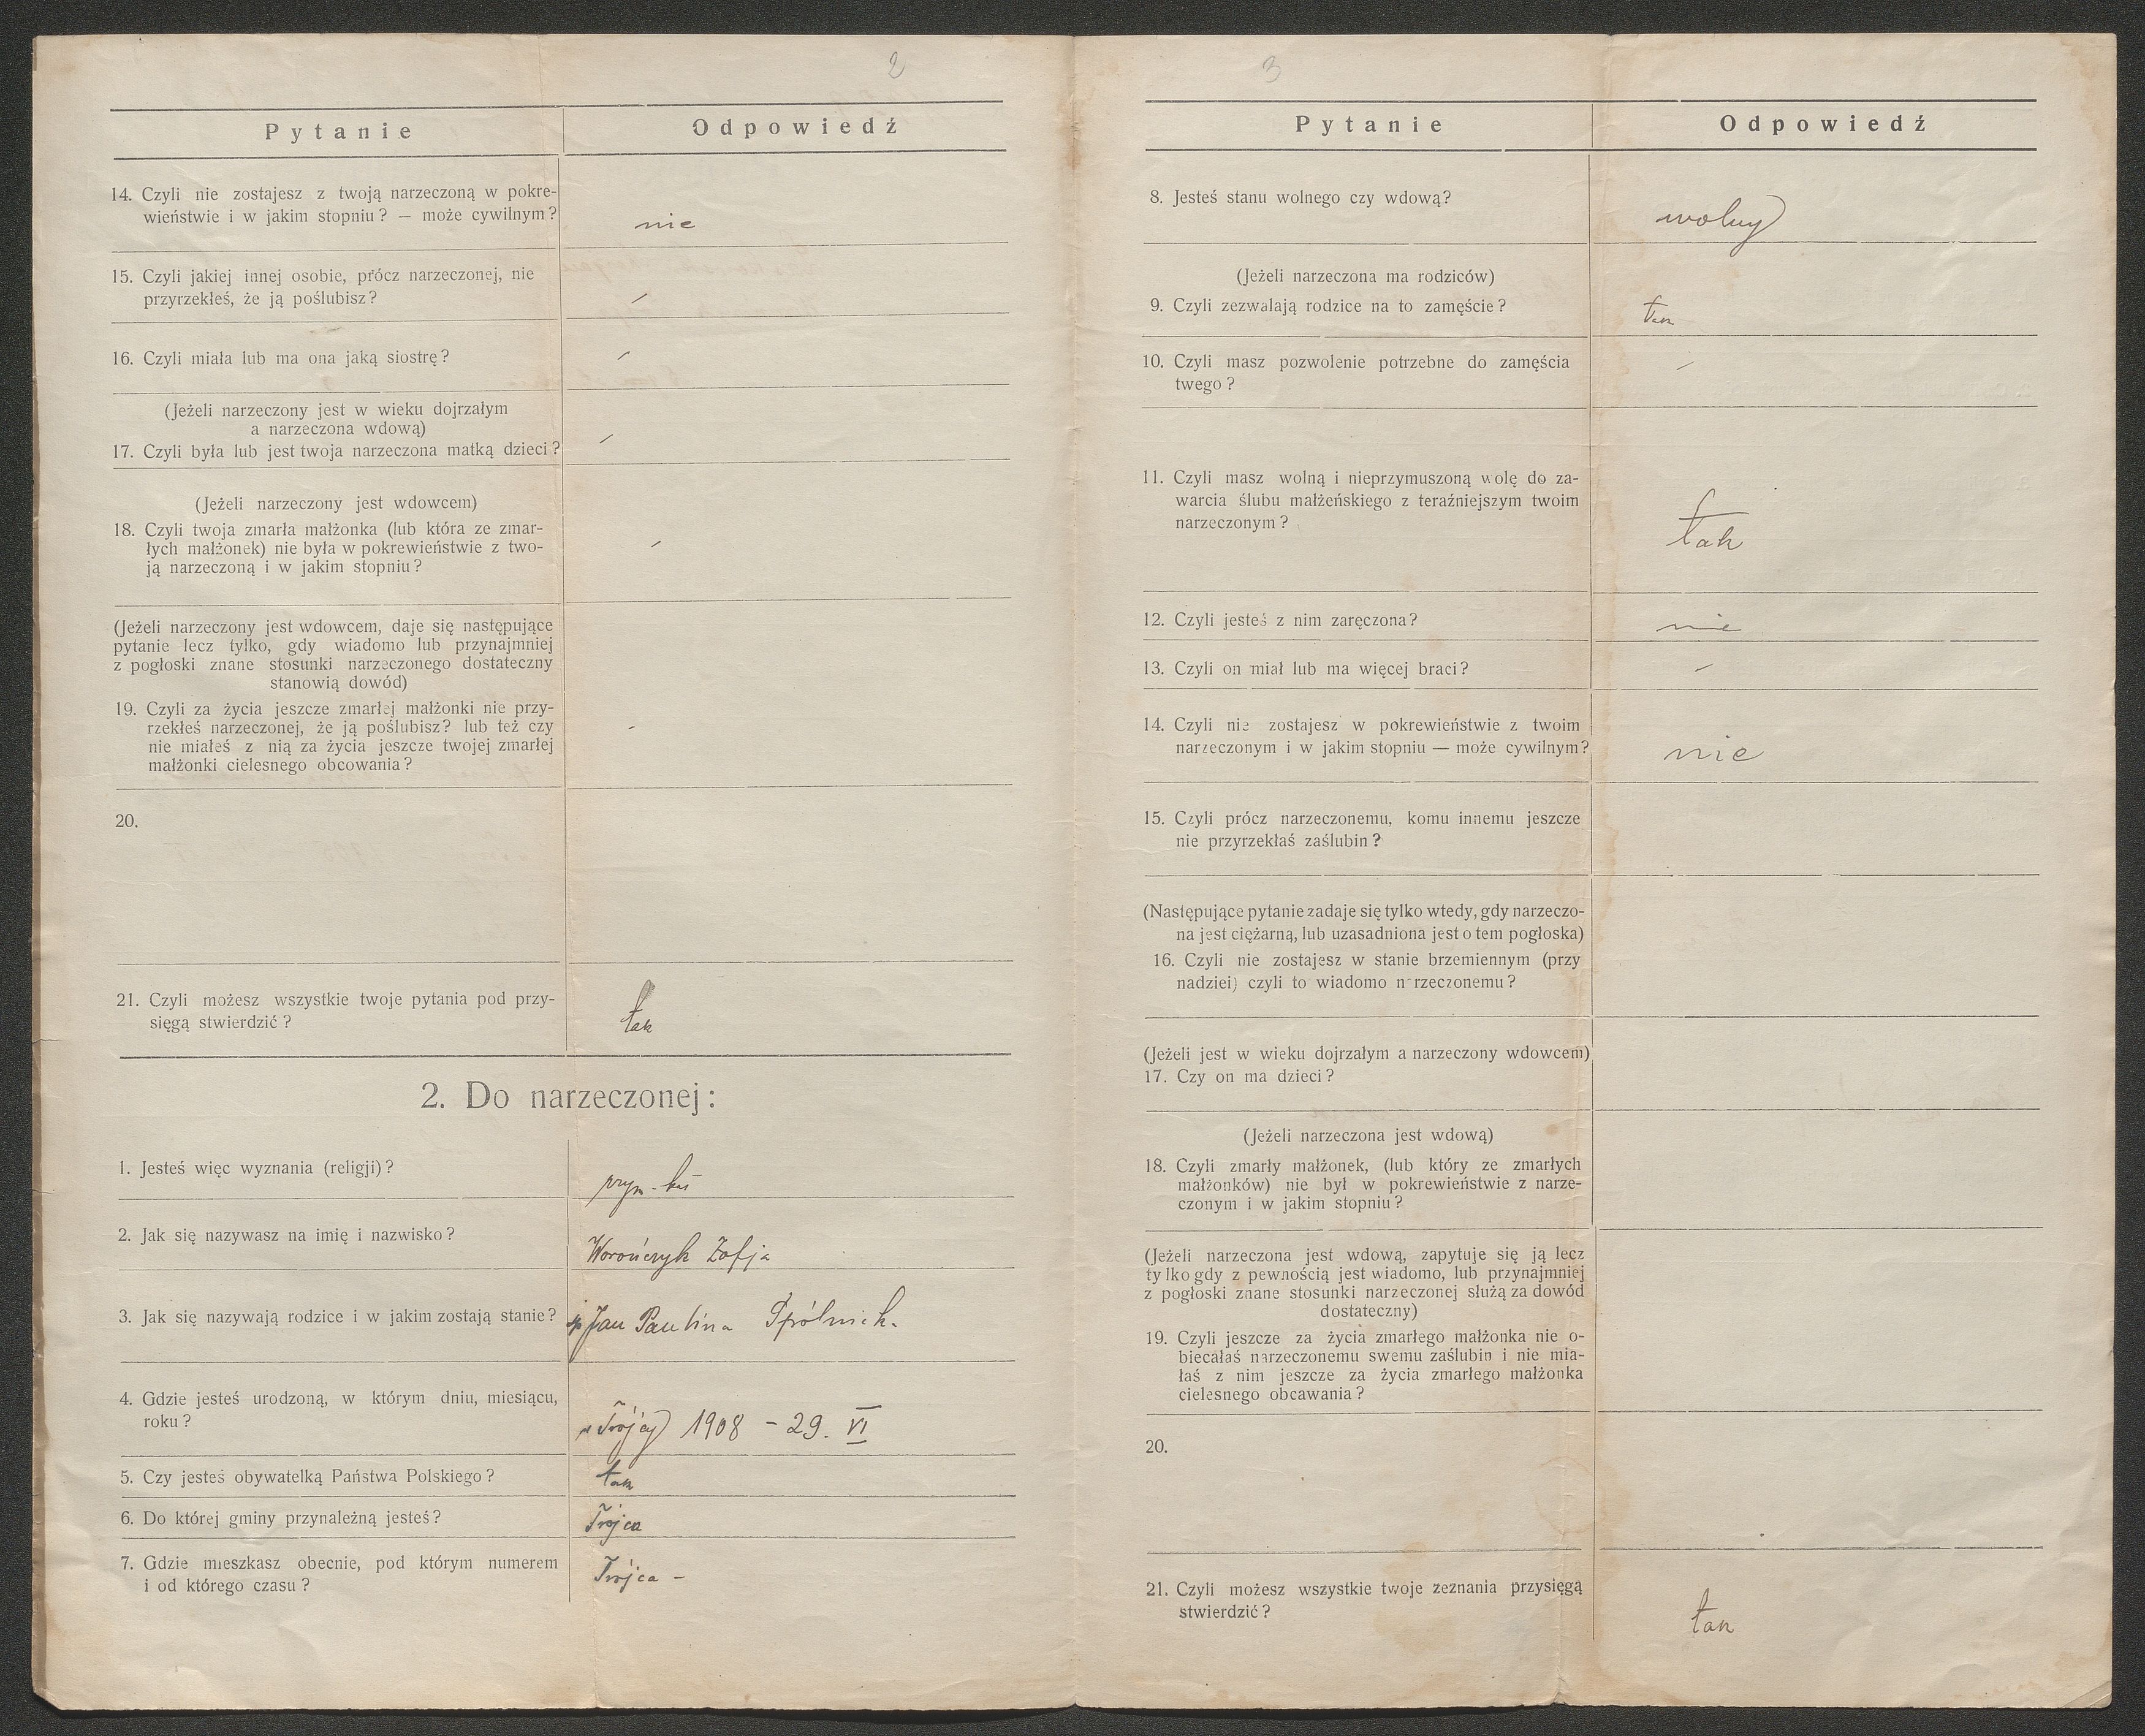 2
Pytanie Odpowiedź
14. Czyli nie zostajesz z twoją narzeczoną w pokre-
wieństwie i w jakim stopniu? — może cywilnym?
nie
15. Czyli jakiej innej osobie, prócz narzeczonej, nie
przyrzekłeś, że ją poślubisz?
16. Czyli miała lub ma ona jaką siostrę?
(Jeżeli narzeczony jest w wieku dojrzałym
a narzeczona wdową)
17. Czyli była lub jest twoja narzeczona matką dzieci?
(Jeżeli narzeczony jest wdowcem)
18. Czyli twoja zmarła małżonka (lub która ze zmar-
łych małżonek) nie była w pokrewieństwie z two-
ją narzeczoną i w jakim stopniu?
(Jeżeli narzeczony jest wdowcem, daje się następujące
pytanie lecz tylko, gdy wiadomo lub przynajmniej
z pogłoski znane stosunki narzeczonego dostateczny
stanowią dowód)
19. Czyli za życia jeszcze zmarłej małżonki nie przy-
rzekłeś narzeczonej, że ją poślubisz? lub też czy
nie miałeś z nią za życia jeszcze twojej zmarłej
małżonki cielesnego obcowania?
20.
21. Czyli możesz wszystkie twoje pytania pod przy-
sięgą stwierdzić?
tak
2. Do narzeczonej:
1. Jesteś więc wyznania (religji)?
rzym.
2. Jak się nazywasz na imię i nazwisko?
Worończyk Zofja
3. Jak się nazywają rodzice i w jakim zostają stanie?
Jan Paulina
4. Gdzie jesteś urodzoną, w którym dniu, miesiącu,
roku?
w Trójcy 1908 - 29. VI
5. Czy jesteś obywatelką Państwa Polskiego?
tak
6. Do której gminy przynależną jesteś?
Trójca
7. Gdzie mieszkasz obecnie, pod którym numerem
i od którego czasu?
Trójca -
3
Pytanie Odpowiedź
8. Jesteś stanu wolnego czy wdową?
wolny
(Jeżeli narzeczona ma rodziców)
9. Czyli zezwalają rodzice na to zamęście?
tak
10. Czyli masz pozwolenie potrzebne do zamęścia
twego?
11. Czyli masz wolną i nieprzymuszoną wolę do za-
warcia ślubu małżeńskiego z teraźniejszym twoim
narzeczonym?
tak
12. Czyli jesteś z nim zaręczona?
nie
13. Czyli on miał lub ma więcej braci?
14. Czyli nie zostajesz w pokrewieństwie z twoim
narzeczonym i w jakim stopniu — może cywilnym?
nie
15. Czyli prócz narzeczonemu, komu innemu jeszcze
nie przyrzekłaś zaślubin?
(Następujące pytanie zadaje się tylko wtedy, gdy narzeczo-
na jest ciężarną, lub uzasadniona jest o tem pogłoska)
16. Czyli nie zostajesz w stanie brzemiennym (przy
nadziei) czyli to wiadomo narzeczonemu?
(Jeżeli jest w wieku dojrzałym a narzeczony wdowcem)
17. Czy on ma dzieci?
(Jeżeli narzeczona jest wdową)
18. Czyli zmarły małżonek, (lub który ze zmarłych
małżonków) nie był w pokrewieństwie z narze-
czonym i w jakim stopniu?
(Jeżeli narzeczona jest wdową, zapytuje się ją lecz
tylko gdy z pewnością jest wiadomo, lub przynajmniej
z pogłoski znane stosunki narzeczonej służą za dowód
dostateczny)
19. Czyli jeszcze za życia zmarłego małżonka nie o-
biecałaś narzeczonemu swemu zaślubin i nie mia-
łaś z nim jeszcze za życia zmarłego małżonka
cielesnego obcawania?
20.
21. Czyli możesz wszystkie twoje zeznania przysięgą
stwierdzić?
tak